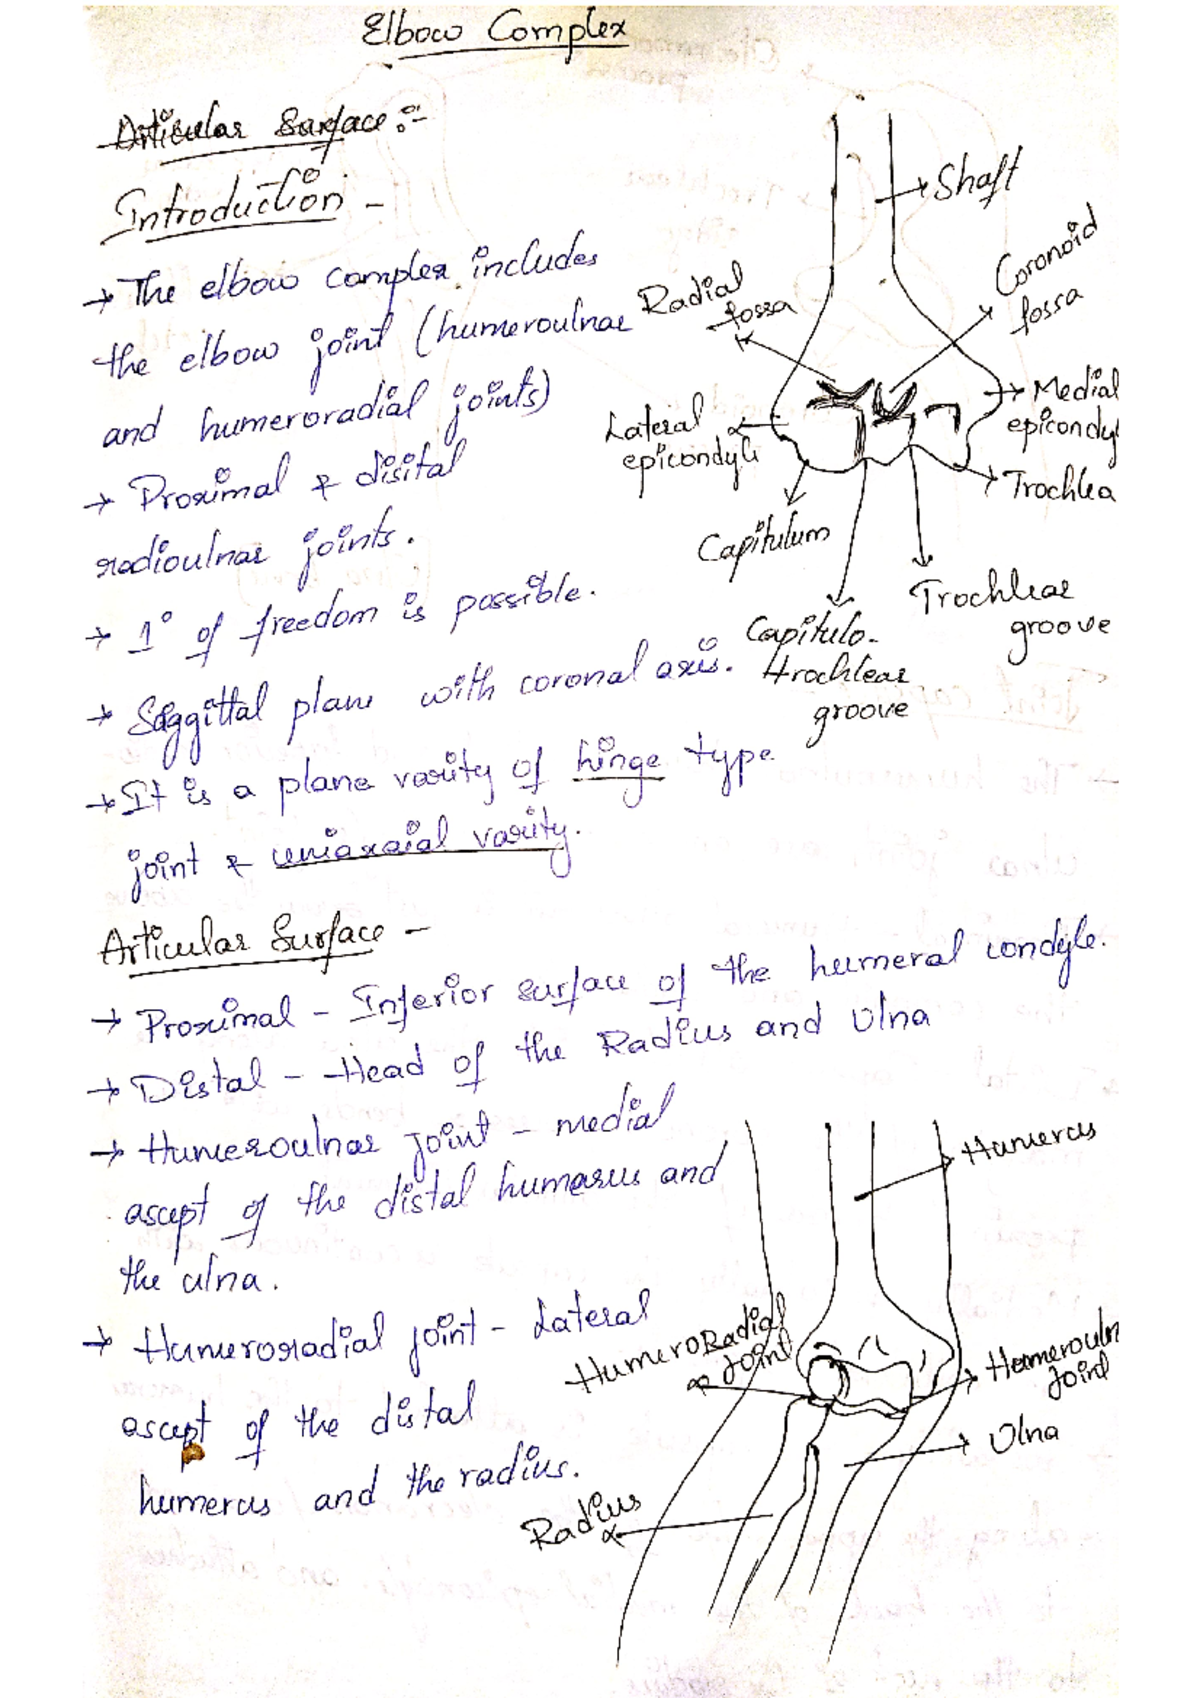 Elbow Complex
Articular Surface:-
Introduction -
→ The elbow complex includes
the elbow joint (humeroulnar
and humeroradial joints)
→ Proximal & disital
radioulnar joints.
→ 1° of freedom is possible.
→ Saggittal plane with coronal axis.
→ It is a plane varity of hinge type
joint & uniaxaial varity.
Shaft
Coronoid
fossa
Radial
fossa
Medial
epicondyl
Lateral
epicondyle
Trochlea
Capitulum
Trochlear
groove
Capitulo-
trochlear
groove
Articular Surface -
→ Proximal - Inferior surface of the humeral condyle.
→ Distal - Head of the Radius and Ulna
→ Humeroulnar Joint - medial
ascept of the distal humarus and
the ulna.
→ Humeroradial joint - Lateral
ascept of the distal
humerus and the radius.
Humerus
HumeroRadial
Joint
Humerouln
Joint
Ulna
Radius